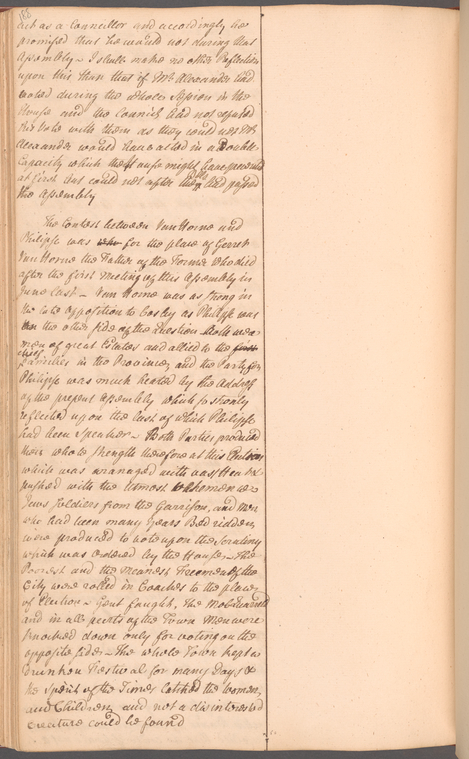 act as a Councillor and accordingly he
promised that he would not during that
Assembly – I shall make no other Reflection
upon this than that if Mr. Alexander had
voted during the whole Session in the
House and the Council had not refused
to vote with them as they would not Mr
Alexander would have acted in a double
Capacity which the House might have prevented
at first but could not after they had passed
the Assembly
The Contest between Van Horne and
Philipse was for the place of Gerret
Van Horne the Father of the Former who died
after the first meeting of this Assembly in
June last – Van Horne was as strong in
the late opposition to Cosby as Philipse was
on the other side of the Question Both were
men of great Estates and allied to the first
chief
Families in the Province, and the Party for
Philipse was much heated by the Address
of the present Assembly which so strongly
reflected upon the last of which Philipse
had been Speaker – Both Parties produced
their whole Strength therefore at this Election
which was managed with vast Heat &
pushed with the utmost Vehemence
Jews Soldiers from the Garrison, and Men
who had been many Years Bed ridden
were produced to vote upon the Scrutiny
which was ordered by the House – The
Poorest and the Meanest Freemen of the
City were rolled in Coaches to the place
of Election – Gent fought, The Mob
and in all parts of the Town Men were
knocked down only for voting on the
opposite side – The whole Town kept a
Drunken Festival for many Days &
the Spirit of the Times catched the Women,
and Children, and not a disinterested
creature could be found